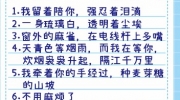 1.我留着陪你，强忍着泪滴
2.一身琉璃白，透明着尘埃
3.窗外的麻雀，在电线杆上多嘴
4.天青色等烟雨，而我在等你，
炊烟袅袅升起，隔江千万里
5.我牵着你的手经过，种麦芽糖
的山坡
6.不用麻烦了